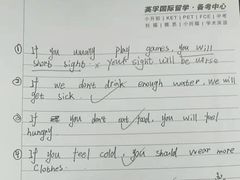 英孚国际留学·备考中心
小升初 | KET | PET | FCE | 中考
① If you usually play games, you will
short sight × your sight will be worse
② If we don't drink enough water, we will
get sick.
③ If you don't eat food, you will feel
hungry.
④ If you feel cold, you should wear more
clothes.